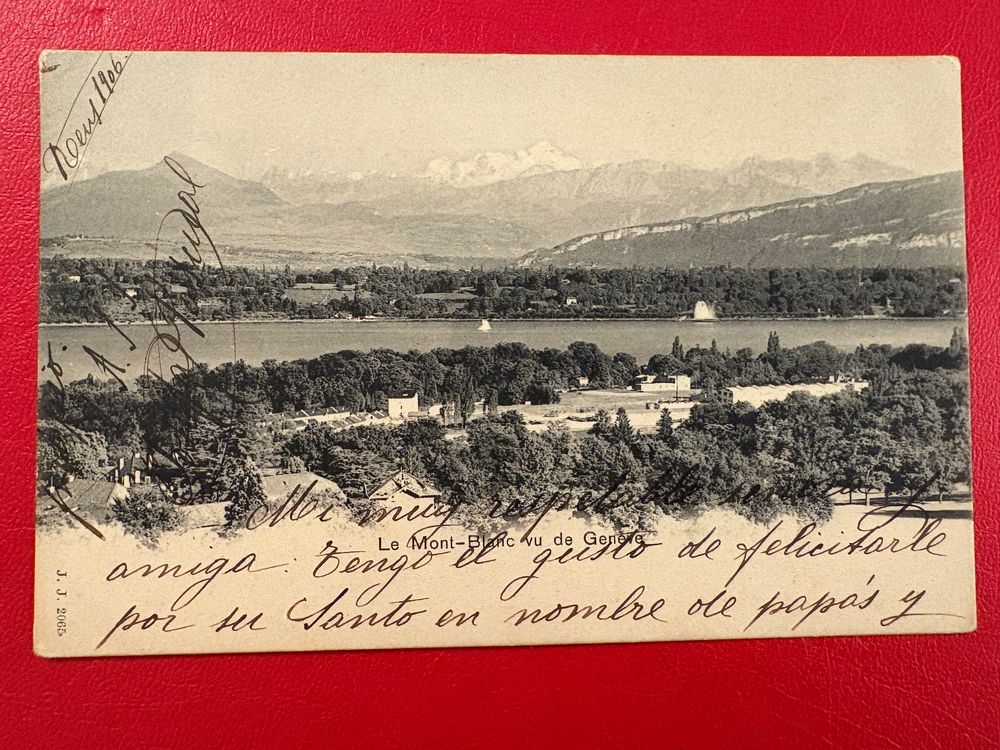 Reus 1906
Mi muy respetable señora y
Le Mont-Blanc vu de Genève
amiga: Tengo el gusto de felicitarle
por su Santo en nombre de papás y
J. J. 2065